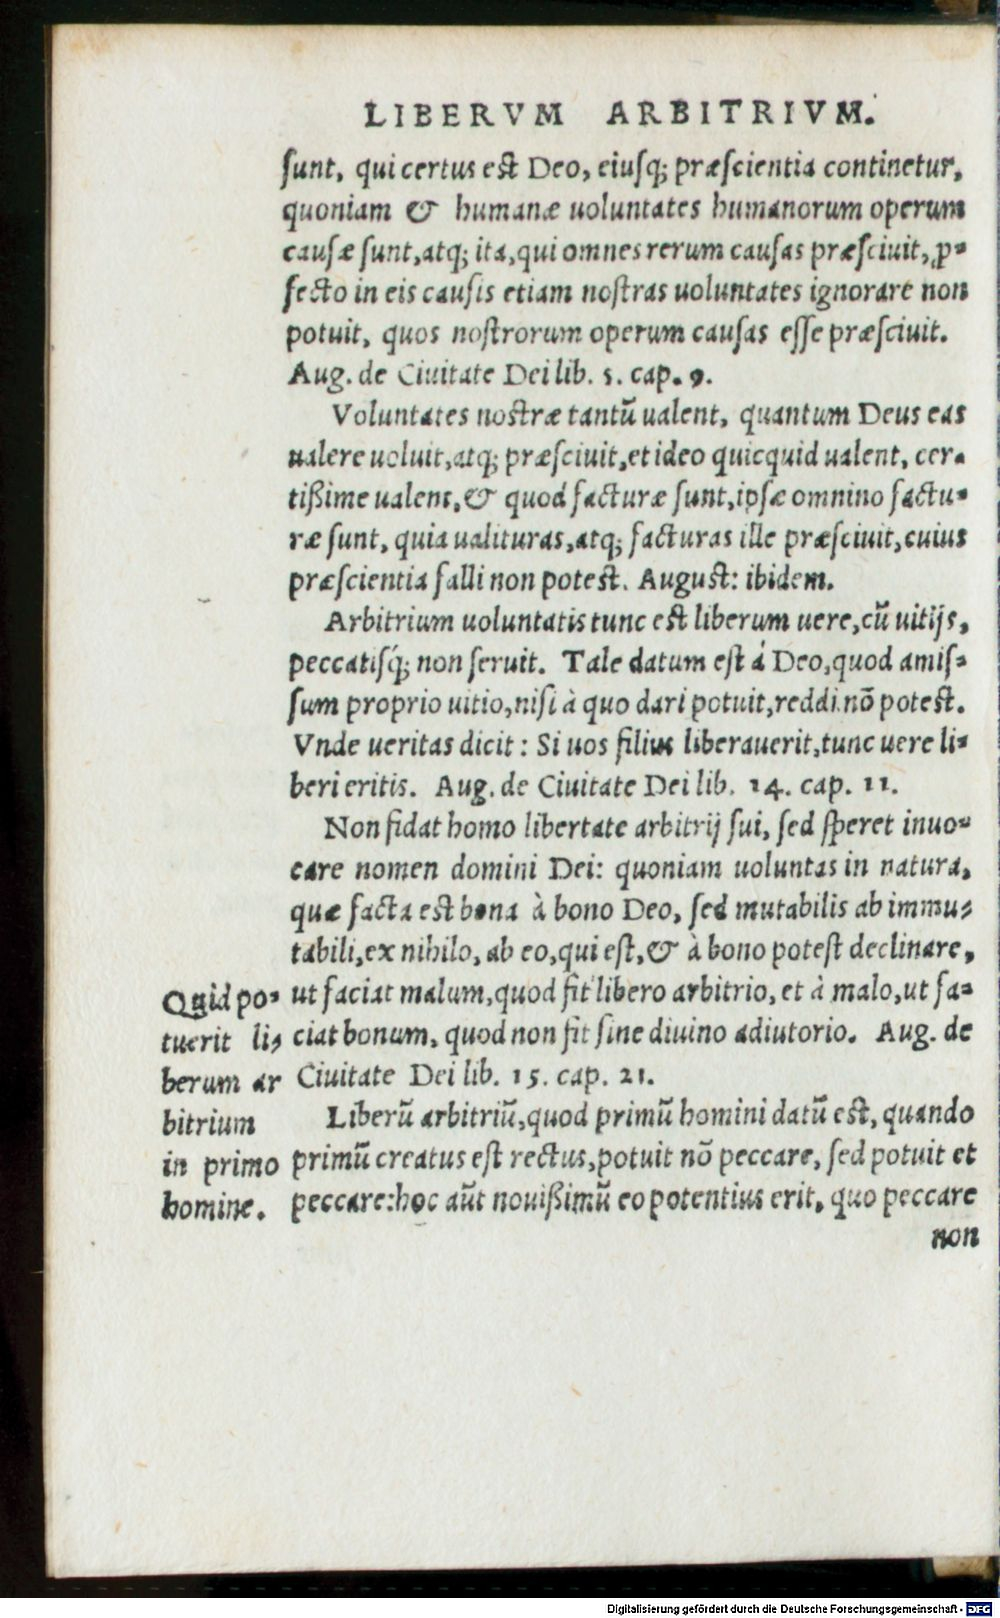 LIBERVM ARBITRIVM.
sunt, qui certus est Deo, eiusq; præscientia continetur,
quoniam & humanæ uoluntates humanorum operum
causæ sunt, atq; ita, qui omnes rerum causas præsciuit, ꝓ-
fecto in eis causis etiam nostras uoluntates ignorare non
potuit, quos nostrorum operum causas esse præsciuit.
Aug. de Ciuitate Dei lib. 5. cap. 9.
Voluntates nostræ tantū ualent, quantum Deus eas
ualere uoluit, atq; præsciuit, et ideo quicquid ualent, cer-
tißime ualent, & quod facturæ sunt, ipsæ omnino factu-
ræ sunt, quia ualituras, atq; facturas ille præsciuit, cuius
præscientia falli non potest. August: ibidem.
Arbitrium uoluntatis tunc est liberum uere, cū uitijs,
peccatisq́; non seruit. Tale datum est á Deo, quod amis-
sum proprio uitio, nisi à quo dari potuit, reddi nō potest.
Vnde ueritas dicit: Si uos filius liberauerit, tunc uere li-
beri eritis. Aug. de Ciuitate Dei lib. 14. cap. 11.
Non fidat homo libertate arbitrij sui, sed speret inuo-
care nomen domini Dei: quoniam uoluntas in natura,
quæ facta est bona à bono Deo, sed mutabilis ab immu-
tabili, ex nihilo, ab eo, qui est, & à bono potest declinare,
ut faciat malum, quod fit libero arbitrio, et à malo, ut fa-
ciat bonum, quod non fit sine diuino adiutorio. Aug. de
Ciuitate Dei lib. 15. cap. 21.
Quid po-
tuerit li-
berum ar
bitrium
in primo
homine.
Liberū arbitriū, quod primū homini datū est, quando
primū creatus est rectus, potuit nō peccare, sed potuit et
peccare: hoc aūt nouißimū eo potentius erit, quo peccare
non
Digitalisierung gefördert durch die Deutsche Forschungsgemeinschaft - DFG